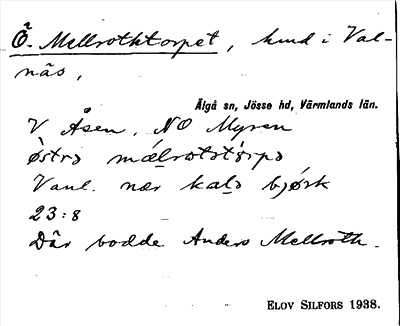 Ö. Mellrothtorpet, hmd i Val-
näs,
Älgå sn, Jösse hd, Värmlands län.
V Åsen, NO Myren
østrɔ mælrotstòrpɔ
Vanl. nær kalɔ bjørk
23:8
Där bodde Anders Mellroth.
ELOV SILFORS 1938.